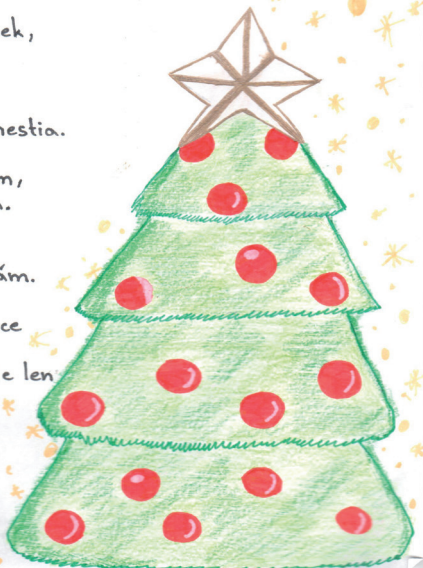 ek,
nestia.
m,
.
ám.
ce
e len